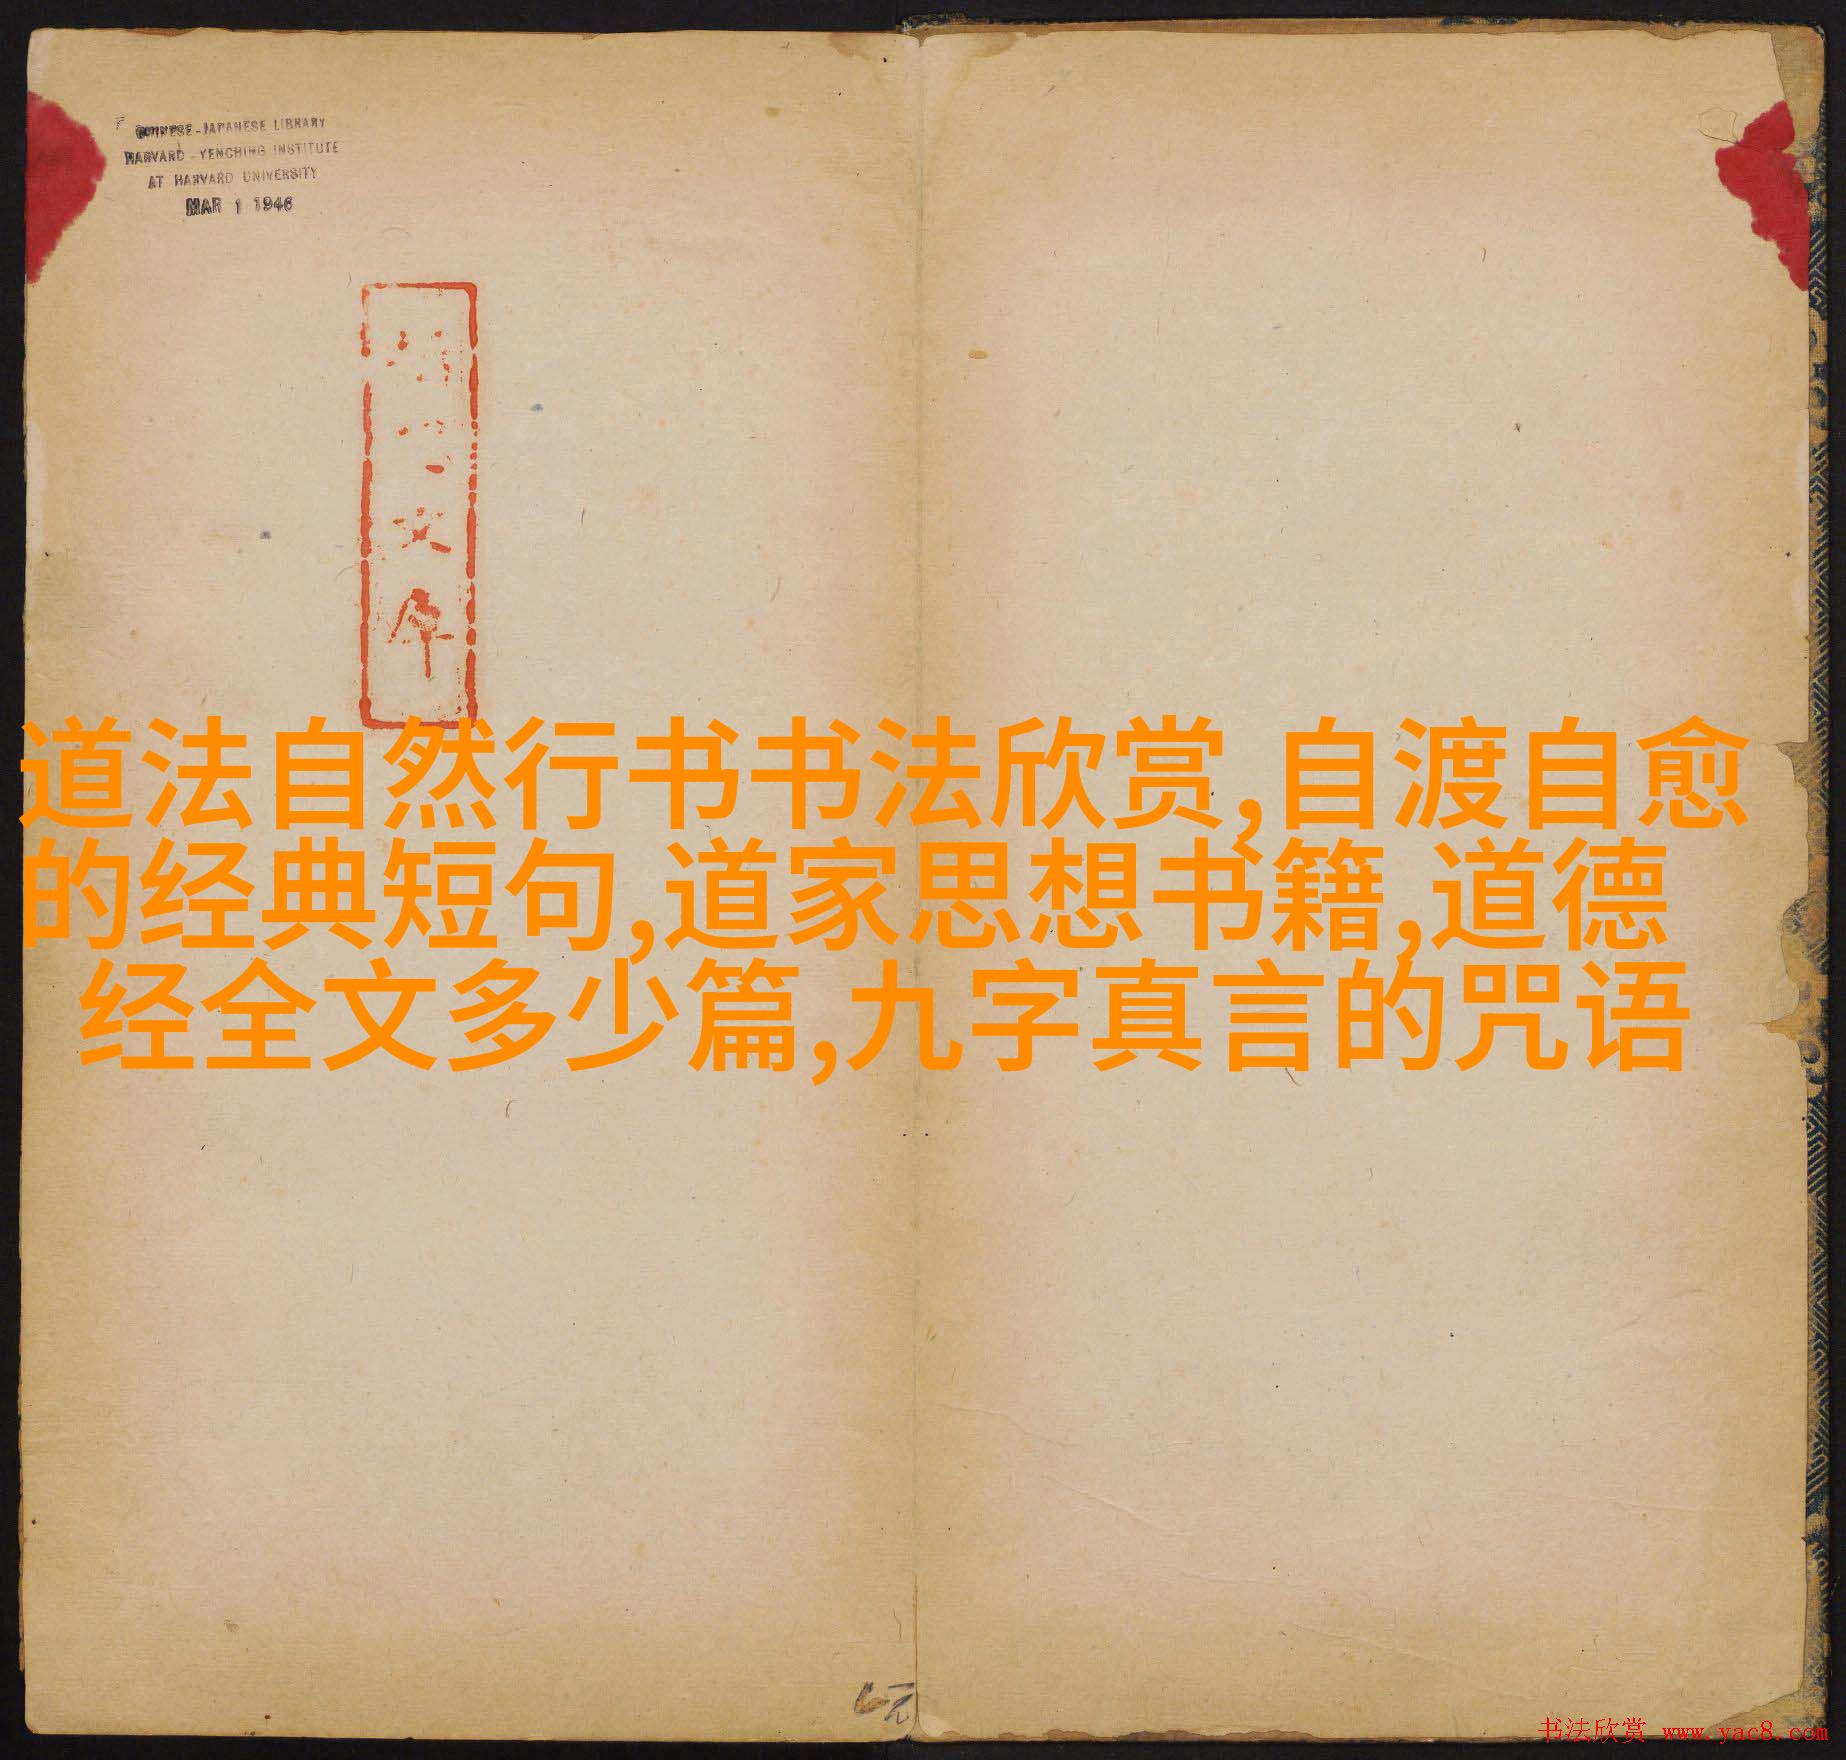 CHINESE-JAPANESE LIBRARY
HARVARD-YENCHING INSTITUTE
AT HARVARD UNIVERSITY
MAR 1 1946
文
道法自然行书书法欣赏,自渡自愈
的经典短句,道家思想书籍,道德
经全文多少篇,九字真言的咒语
元
书法欣赏 www.yac8.com